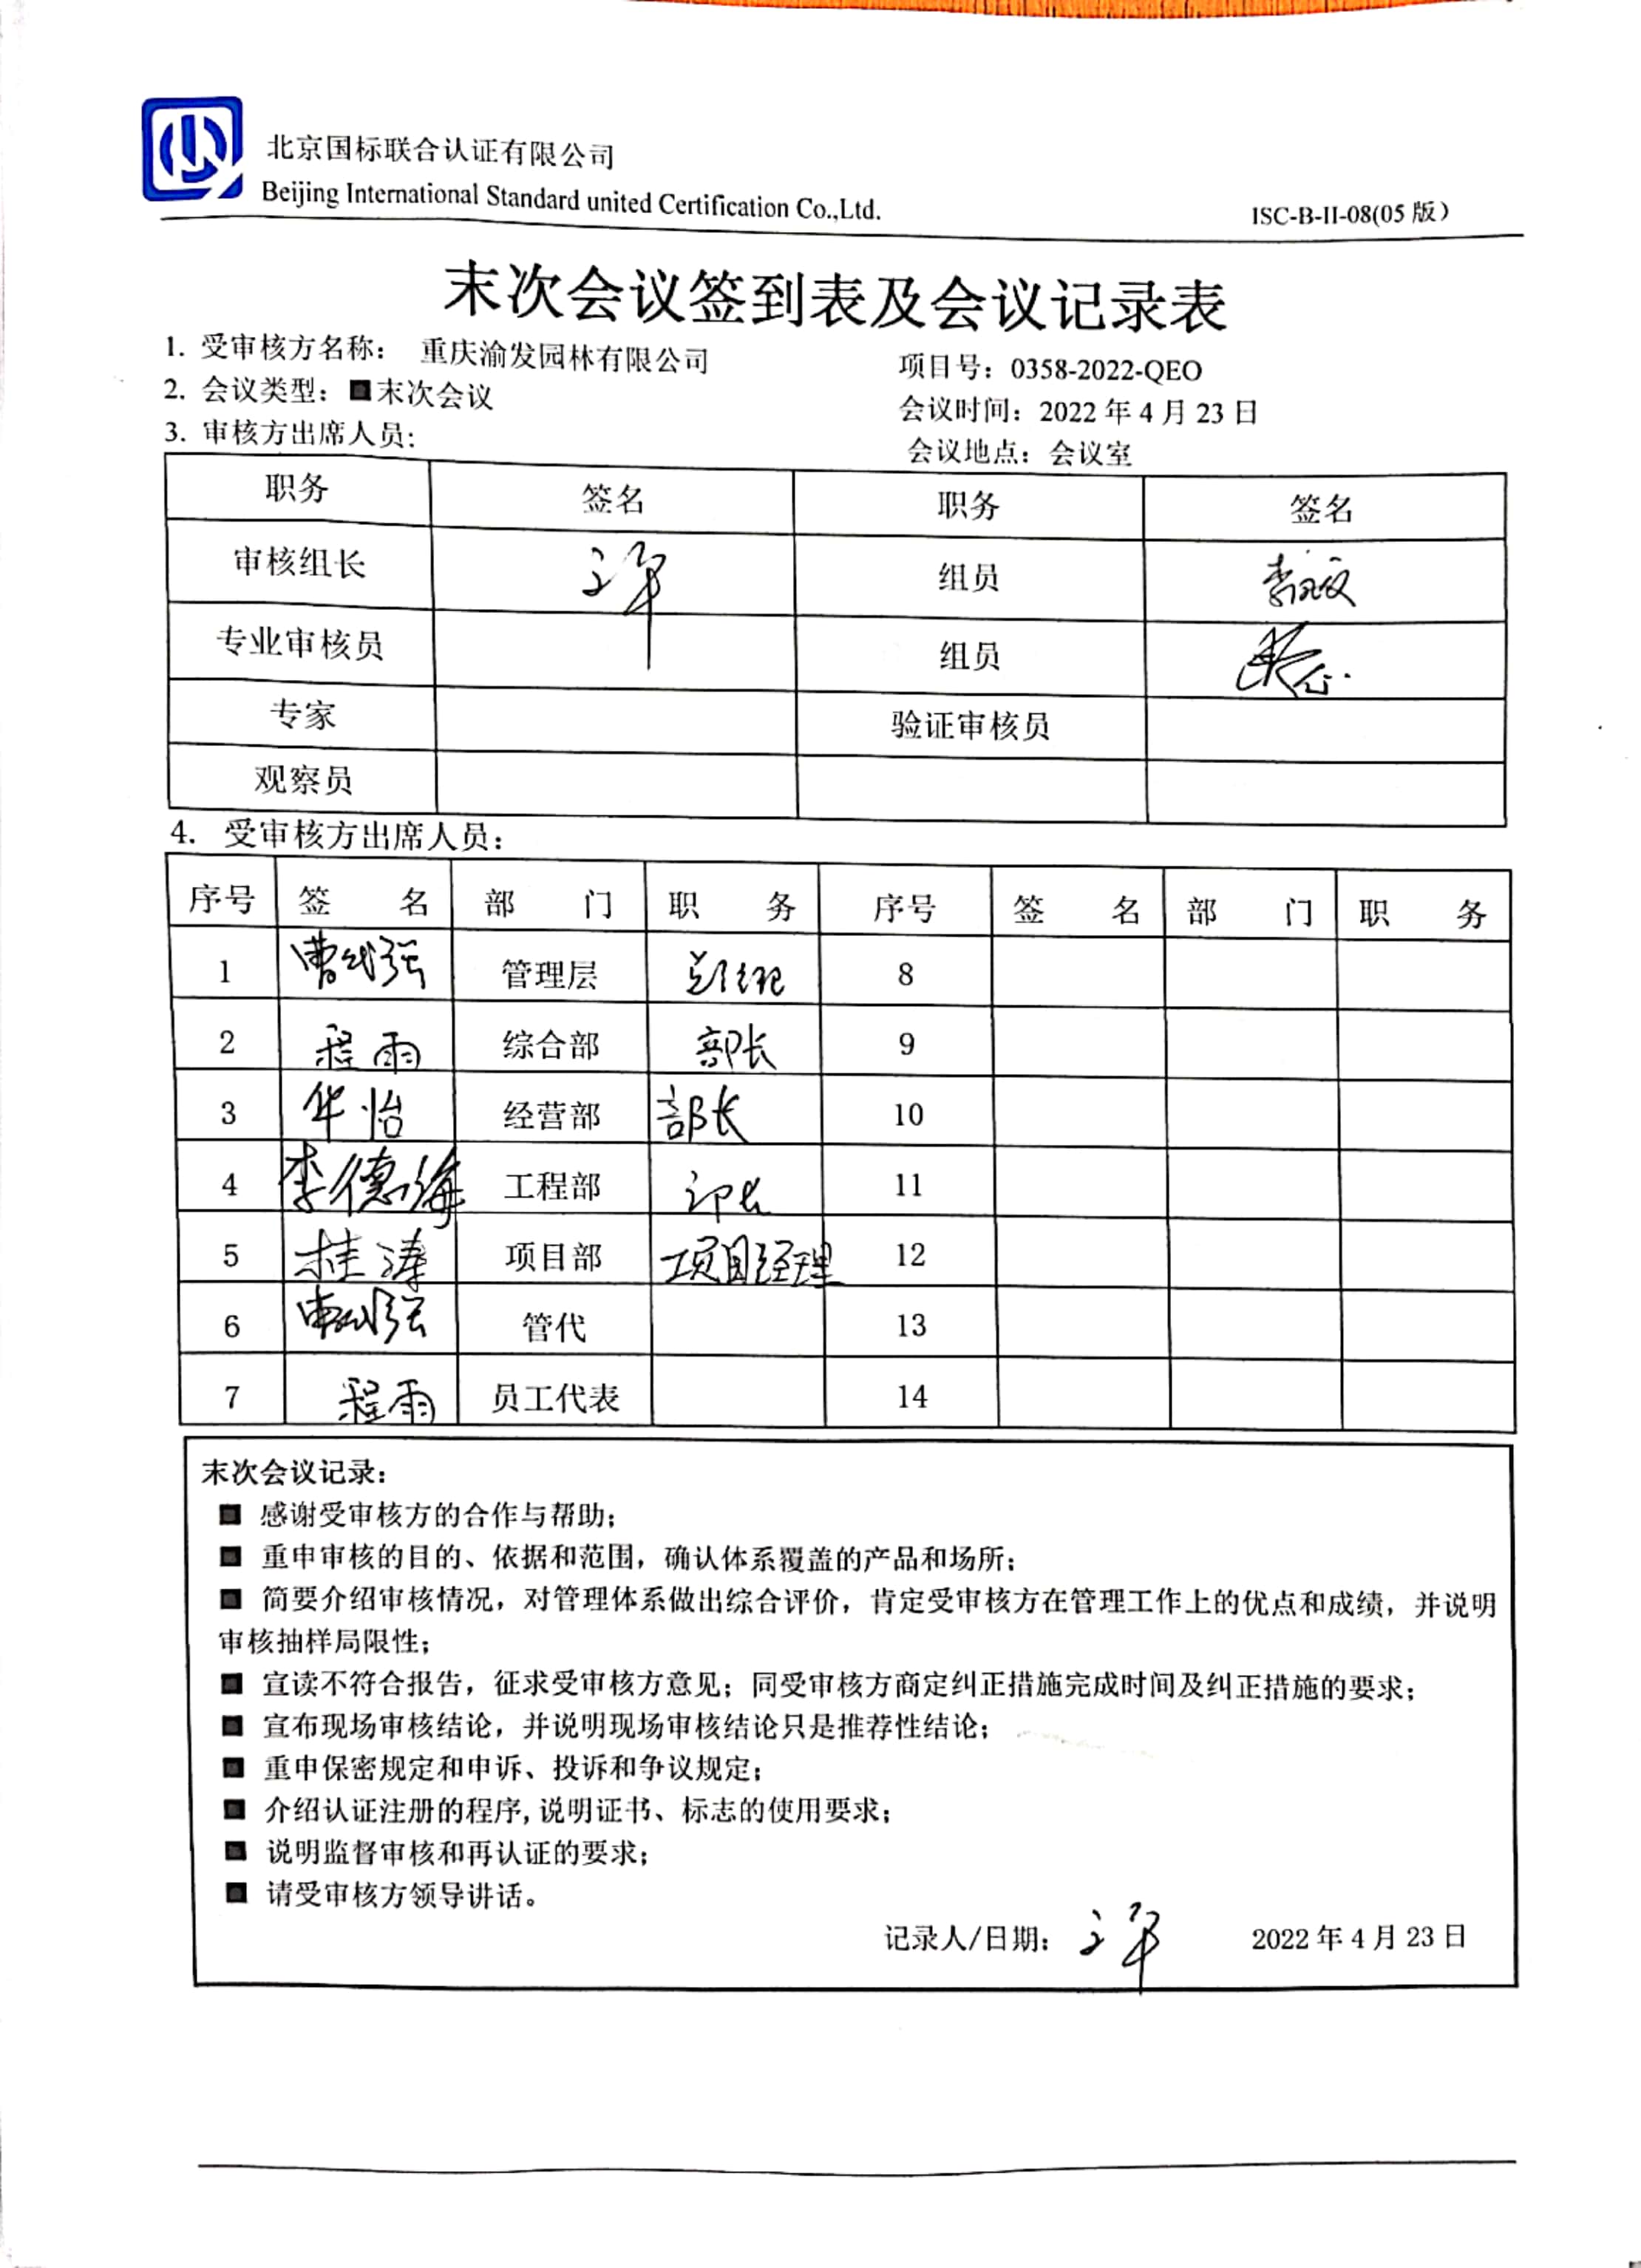 北京国标联合认证有限公司
Beijing International Standard united Certification Co.,Ltd.
ISC-B-II-08(05 版)
末次会议签到表及会议记录表
1. 受审核方名称： 重庆渝发园林有限公司 项目号：0358-2022-QEO
2. 会议类型：■末次会议 会议时间：2022 年 4 月 23 日
3. 审核方出席人员: 会议地点：会议室
职务 签名 职务 签名
审核组长 组员
专业审核员 组员
专家 验证审核员
观察员
4. 受审核方出席人员：
序号 签 名 部 门 职 务 序号 签 名 部 门 职 务
1 管理层 总经理 8
2 程雨 综合部 部长 9
3 华怡 经营部 部长 10
4 李德海 工程部 部长 11
5 桂涛 项目部 项目经理 12
6 管代 13
7 程雨 员工代表 14
末次会议记录：
■ 感谢受审核方的合作与帮助；
■ 重申审核的目的、依据和范围，确认体系覆盖的产品和场所；
■ 简要介绍审核情况，对管理体系做出综合评价，肯定受审核方在管理工作上的优点和成绩，并说明
审核抽样局限性；
■ 宣读不符合报告，征求受审核方意见；同受审核方商定纠正措施完成时间及纠正措施的要求；
■ 宣布现场审核结论，并说明现场审核结论只是推荐性结论；
■ 重申保密规定和申诉、投诉和争议规定；
■ 介绍认证注册的程序,说明证书、标志的使用要求；
■ 说明监督审核和再认证的要求；
■ 请受审核方领导讲话。
记录人/日期： 2022 年 4 月 23 日